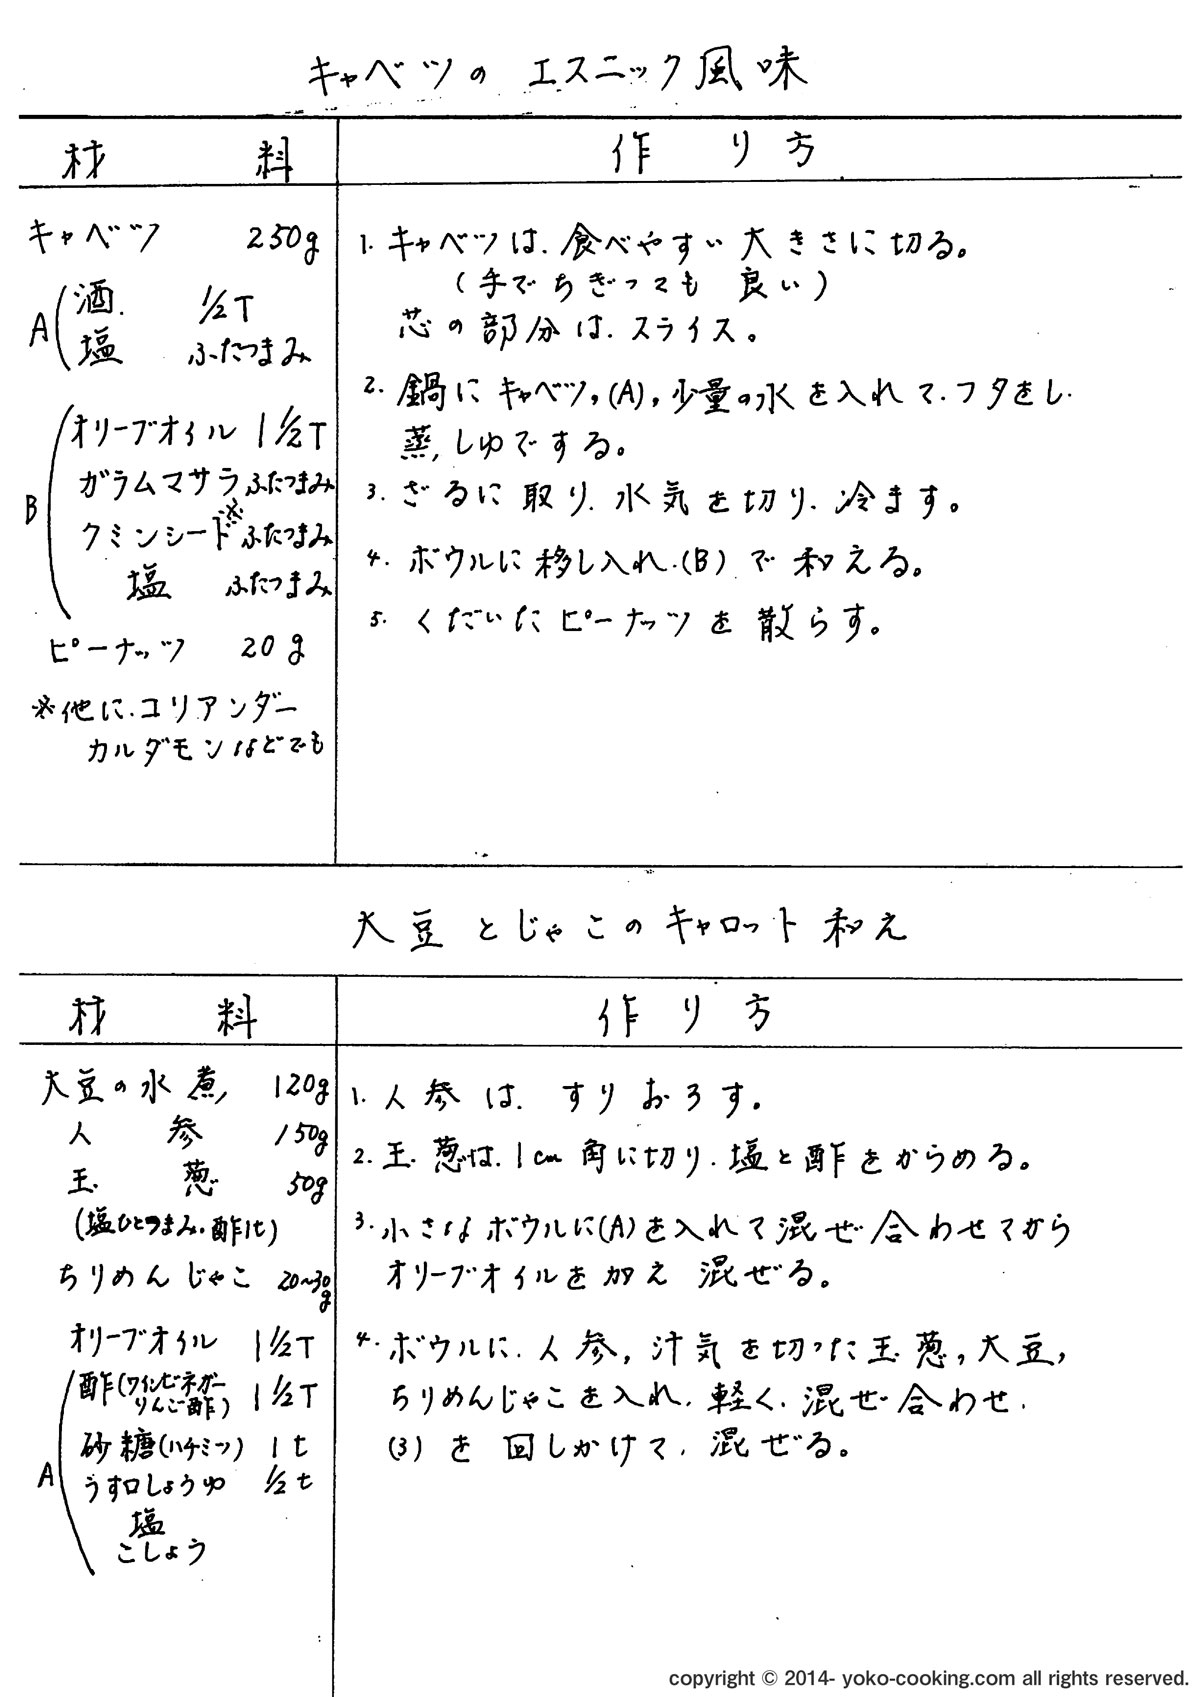 キャベツの エスニック風味
材 料
作 り 方
キャベツ 250g
A
酒 1/2T
塩 ふたつまみ
B
オリーブオイル 1 1/2T
ガラムマサラ ふたつまみ
クミンシード※ ふたつまみ
塩 ふたつまみ
ピーナッツ 20g
※他に、コリアンダー
カルダモンなどでも
1. キャベツは、食べやすい大きさに切る。
(手でちぎっても 良い)
芯の部分は、スライス。
2. 鍋にキャベツ,(A),少量の水を入れて、フタをし、
蒸しゆでする。
3. ざるに取り、水気を切り、冷ます。
4. ボウルに移し入れ、(B)で和える。
5. くだいたピーナッツを散らす。
大豆とじゃこのキャロット和え
材 料
作 り 方
大豆の水煮 120g
人 参 150g
玉 葱 50g
(塩ひとつまみ、酢1t)
ちりめんじゃこ 20〜30g
オリーブオイル 1 1/2T
A
酢(ワインビネガー
りんご酢) 1 1/2T
砂糖(ハチミツ) 1t
うす口しょうゆ 1/2t
塩
こしょう
1. 人参は、すりおろす。
2. 玉葱は、1cm角に切り、塩と酢をからめる。
3. 小さなボウルに(A)を入れて混ぜ合わせてから
オリーブオイルを加え 混ぜる。
4. ボウルに、人参,汁気を切った玉葱,大豆,
ちりめんじゃこを入れ、軽く、混ぜ合わせ、
(3)を回しかけて、混ぜる。
copyright © 2014- yoko-cooking.com all rights reserved.